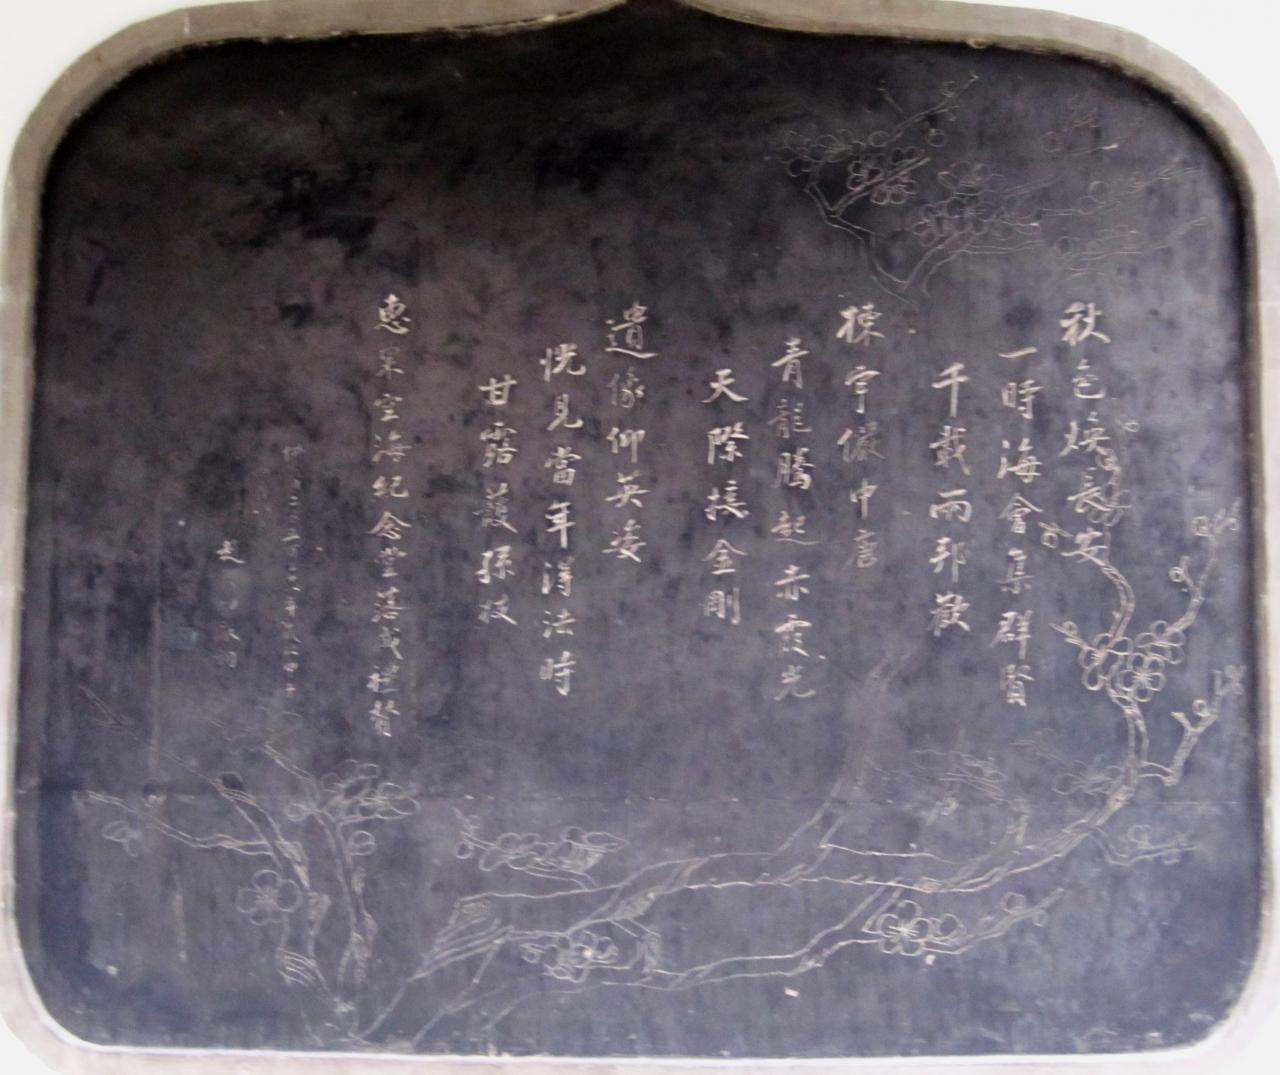 秋色煥長安
一時海會集群賢
千載兩邦歡
棟宇倣中唐
青龍騰起赤霞光
天際接金剛
遺像仰英姿
恍見當年得法時
甘露護孫枝
惠果空海紀念堂落成禮贊